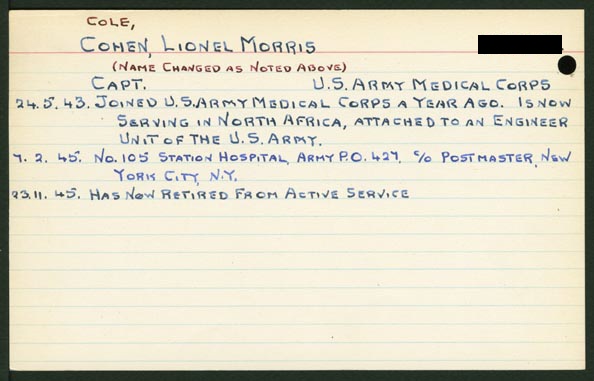 COLE,
COHEN, LIONEL MORRIS
(NAME CHANGED AS NOTED ABOVE)
CAPT. U.S. ARMY MEDICAL CORPS
24. 5. 43. JOINED U.S. ARMY MEDICAL CORPS A YEAR AGO. IS NOW
SERVING IN NORTH AFRICA, ATTACHED TO AN ENGINEER
UNIT OF THE U.S. ARMY.
7. 2. 45. NO. 105 STATION HOSPITAL, ARMY P.O. 427, C/O POSTMASTER, NEW
YORK CITY, N.Y.
23. 11. 45. HAS NOW RETIRED FROM ACTIVE SERVICE